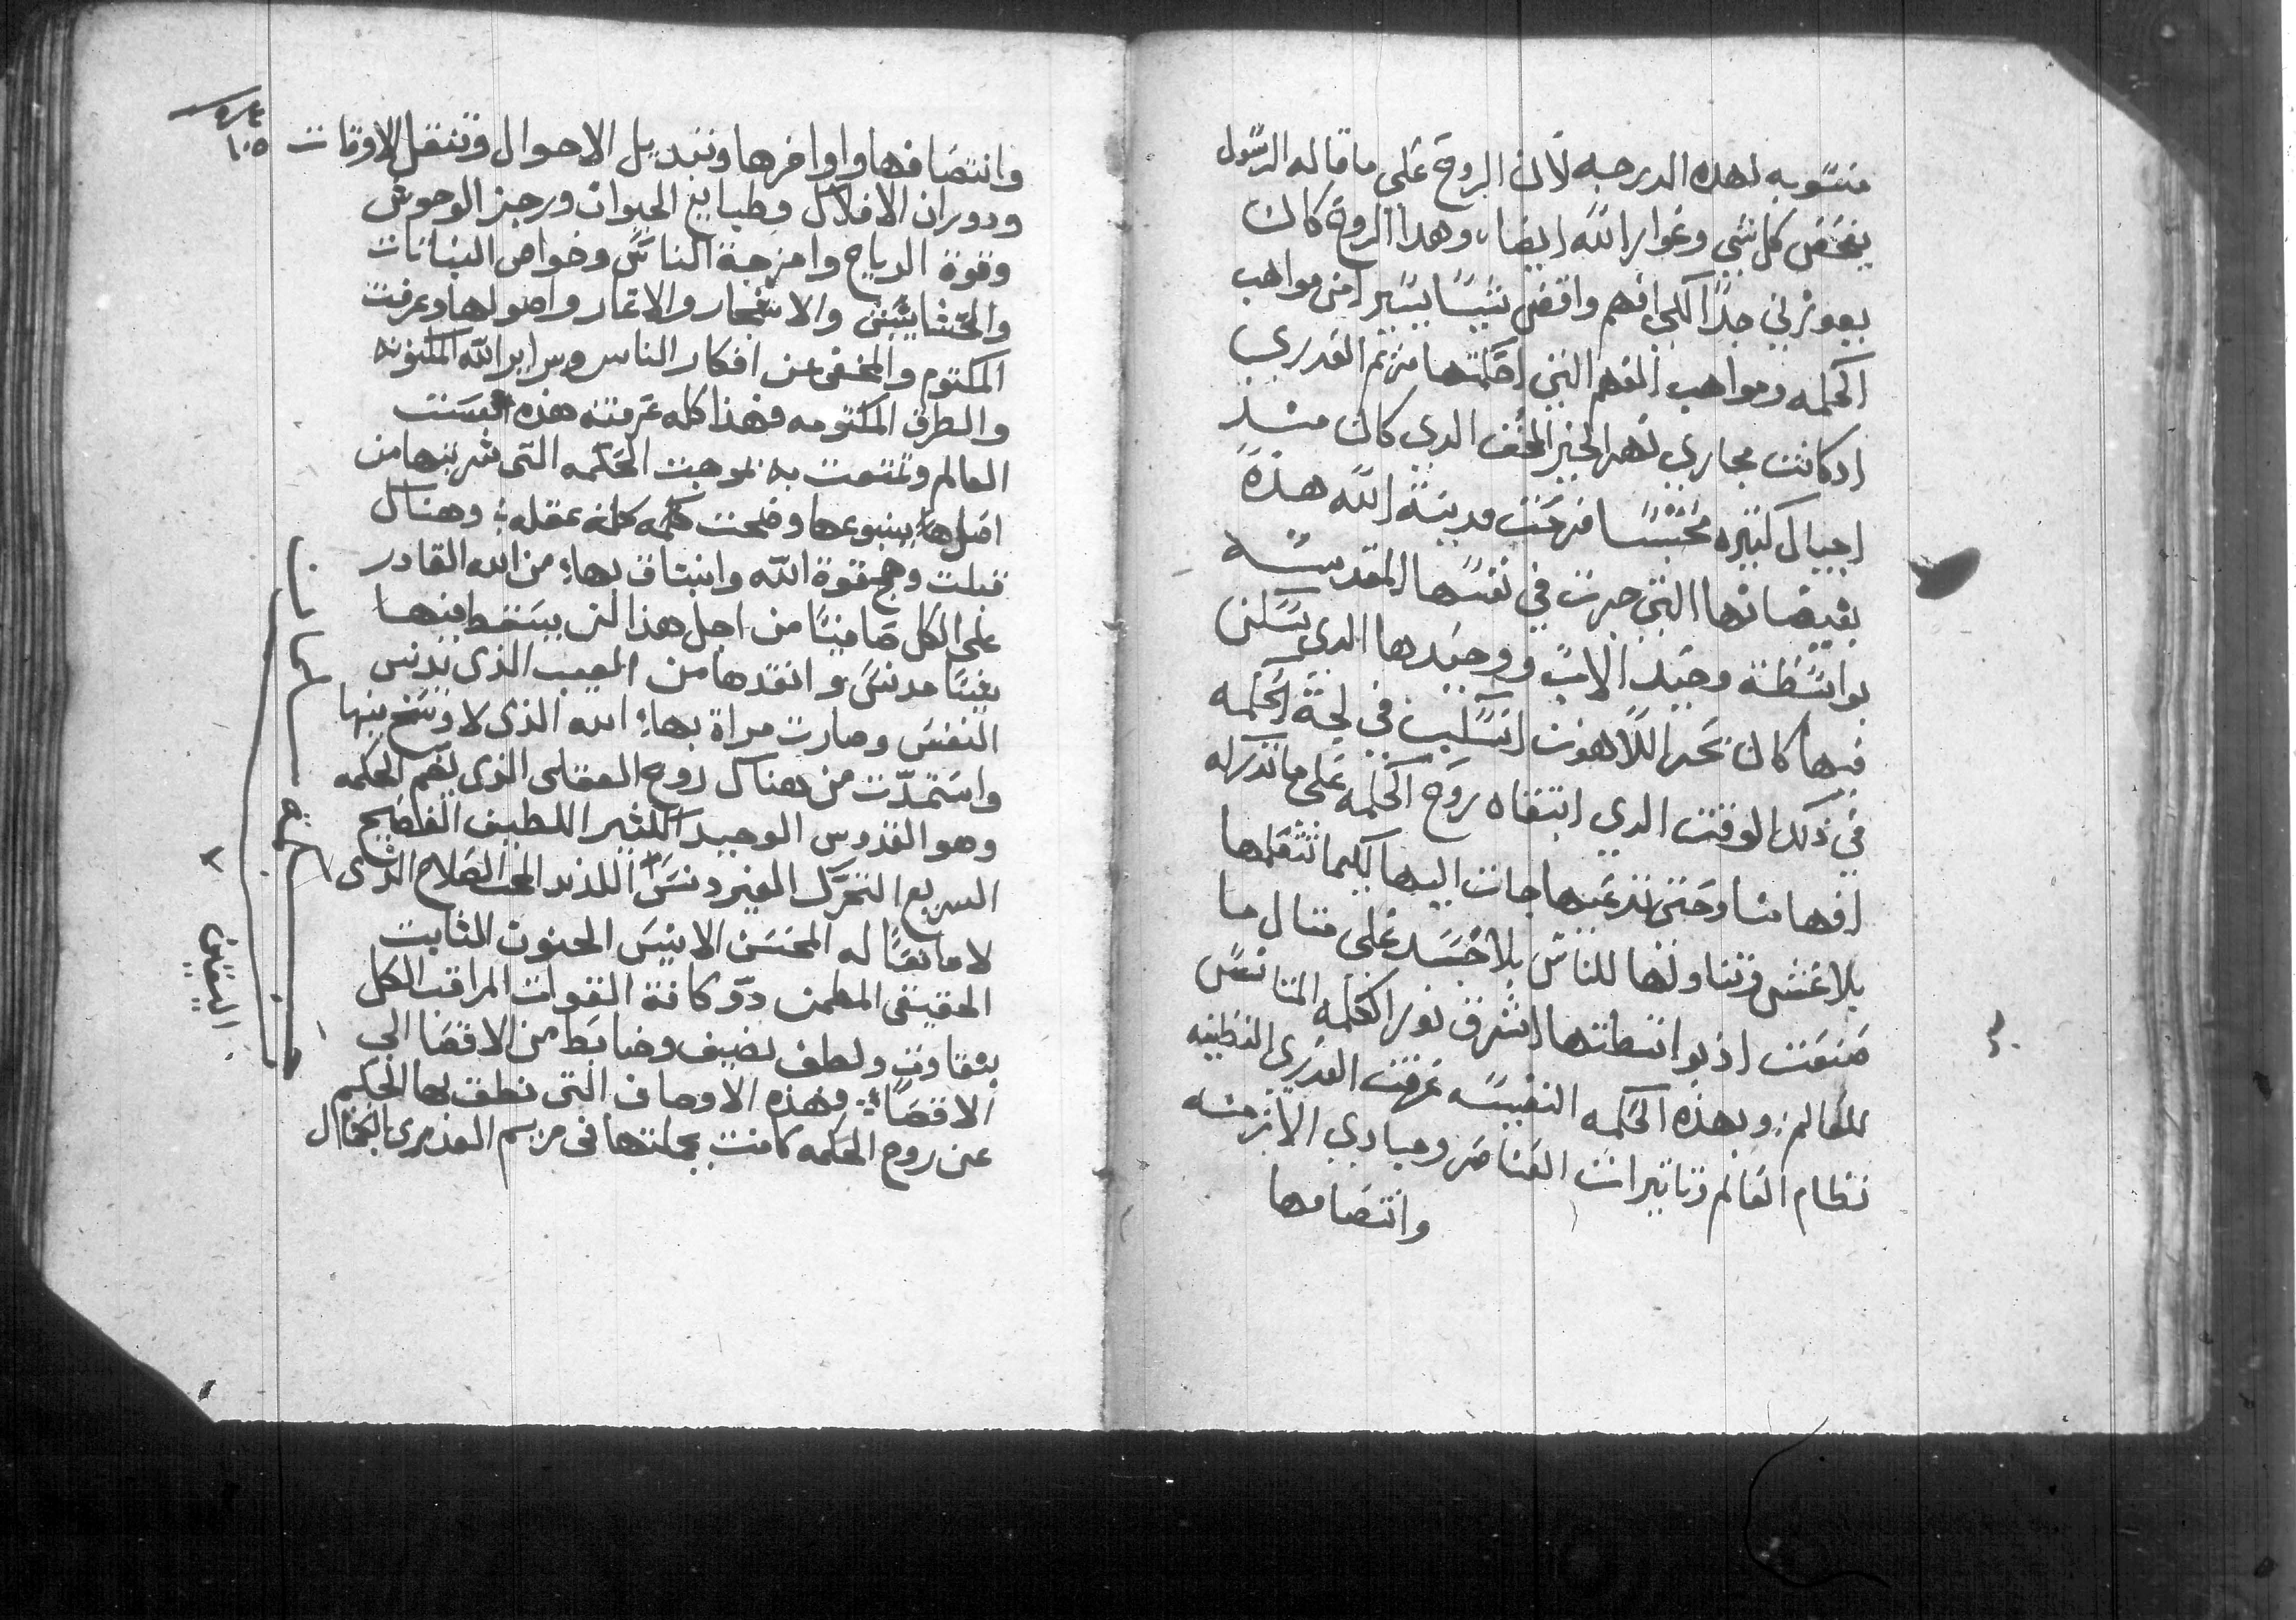 منسوبه لهده الدرجه لان الروح على ما قاله الرسول
يفحص كل شي وغوامر الله ايضا، وهدا الروح كان
يعوزني جدًا لكي افهم واقص شيئًا يسيرا من مواهب
الحكمه ومواهب الفهم التي احكمتها مريم العدري
ادكانت مجاري نهر الخير المخف الدي كان مند
اجيال كتيره محتبسًا فرحت مدينة الله هذه
بفيضانها التي جرت في نفسها المقدسه
بواسطة وحيد الاب ووحيدها الدي تسكن
فيها كان بحر اللاهوت انسكب في لجة الحكمه
في ذلك الوقت الدي ابتغاه روح الحكمه على ما تدركه
افهامنا وحتى تدعيها جات اليها لكيما تتعلمها
بلا غش وتناولها للناس بلا حسد على متال ما
صنعت اذ بواسطتها اشرق نور الكلمه المتانس
للعالم: وبهذه الحكمه النفيسه عرفت العدري الفطينه
نظام العالم وتاتيرات العناصر ومبادي الازمنه
وانتصافها
٤
١٠٥
وانتصافها واواخرها وتبديل الاحوال وتنقل الاوقات
ودوران الافلاك وطبايع الحيوان ورجز الوحوش
وقوة الرياح وامزجة الناس وخواص النباتات
والحشايش والاشجار والاتمار واصولها وعرفت
المكتوم والمخفى عن افكار الناس وسراير الله المكنونه
والطرق المكتومه فهذا كله عرفته هذه الست
العالم وتمتعت به بموجب الحكمه التى شربتها من
اصلها بينبوعها وضحت كلمه كلمة عقله: وهناك
قبلت وهج قوة الله وانبثاق بهاء من الله القادر
على الكل صافيًا من اجل هذا لن يسقط فيها
شيًا مدنس وانقدها من العيب الذى تدنس
النفس وصارت مراة بهاء الله الذى لا وسخ فيها
واستمدّت من هناك روح العقلى الذى لفهم الحكمه
وهو القدوس الوحيد الكثير اللطيف الفصيح
السريع التحرك الغير دنس اللذيد المحب الصلاح الذى
لا مانعًا له المحسن الانيس الحنون الثابت
الحقيقى المطمن ذو كافة القوات المراقب الكل
بتقاوت ولطف نضيف وضابط من الاقصا الى
الاقصاء: وهذه الاوصاف التى نطق بها الحكيم
عن روح الحكمه كانت بجملتها فى مريم العدرى بالكمال
اليقين